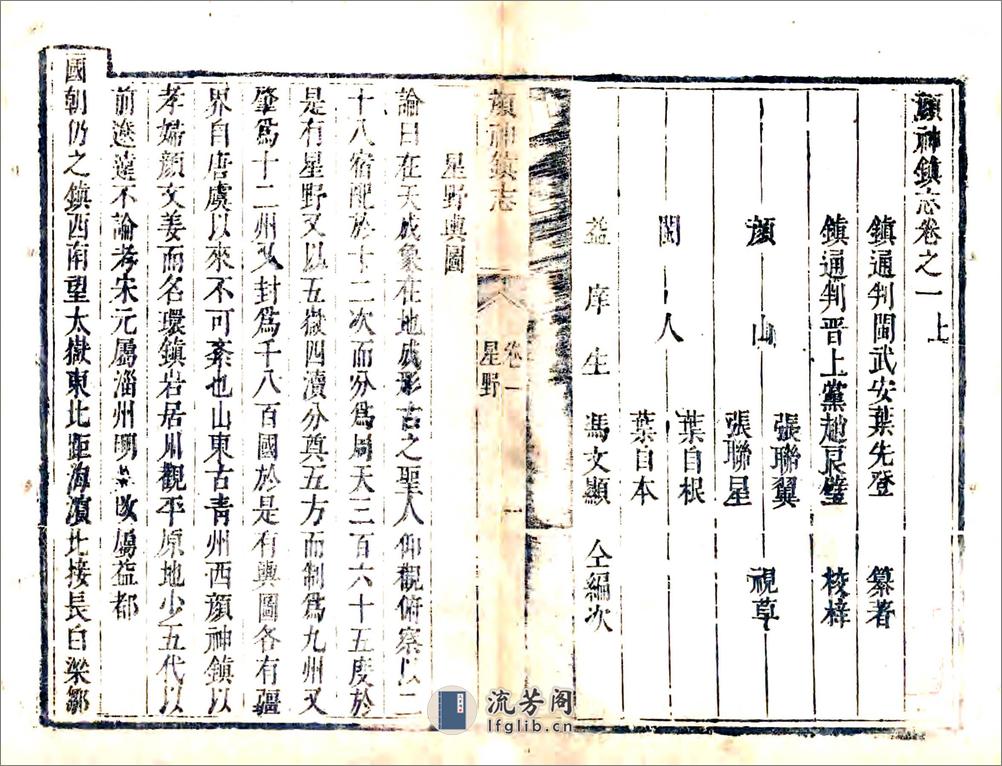 顏神鎮志卷之一 上
鎮通判閩武安葉先登 纂著
鎮通判晋上黨趙良璧 校梓
張聯翼
顏山 視草
張聯星
葉自根
閩人
葉自本
益庠生馮文顯 仝編次
顏神鎮志 卷一 星野 一
星野輿圖
論曰在天成象在地成形古之聖人仰觀俯察以二
十八宿配於十二次而分爲周天三百六十五度於
是有星野又以五嶽四瀆分奠五方而制爲九州又
肇爲十二州又封爲千八百國於是有輿圖各有疆
界自唐虞以來不可紊也山東古青州西顏神鎮以
孝婦顏文姜而名環鎮岩居川觀平原地少五代以
前遼遠不論考宋元屬淄州明 改屬益都
國朝仍之鎮西南望太嶽東北距海濵北接長白梁鄒
流芳阁
lfglib.cn